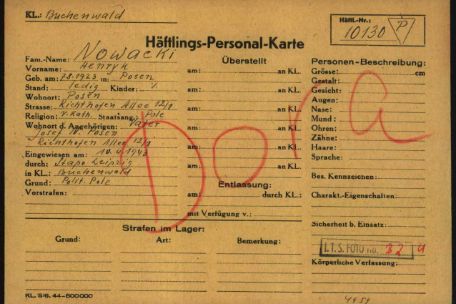 KL.: Buchenwald
Häftl.-Nr.:
10130 P
Häftlings-Personal-Karte
Fam.-Name: Nowacki
Vorname: Henryk
Geb. am: 1923 in Posen
Stand: ledig Kinder:
Wohnort: Posen
Strasse: Richthofen Allee
Religion: r. Kath. Staatsang.: Pole
Wohnort d. Angehörigen: Vater
Josef W. Posen
Richthofen Allee
Eingewiesen am: 10.4.1943
durch: Stapo Leipzig
in KL.: Buchenwald
Grund: Polit. Pole
Vorstrafen:
Überstellt
am: an KL.
am: an KL.
am: an KL.
am: an KL.
am: an KL.
am: an KL.
Entlassung:
am: durch KL.:
mit Verfügung v.:
Personen-Beschreibung:
Grösse: cm
Gestalt:
Gesicht:
Augen:
Nase:
Mund:
Ohren:
Zähne:
Haare:
Sprache:
Bes. Kennzeichen:
Charakt.-Eigenschaften:
Sicherheit b. Einsatz:
I.T.S. FOTO No.
Körperliche Verfassung:
Dora
Strafen im Lager:
Grund: Art: Bemerkung:
KL. 5/6. 44-500000